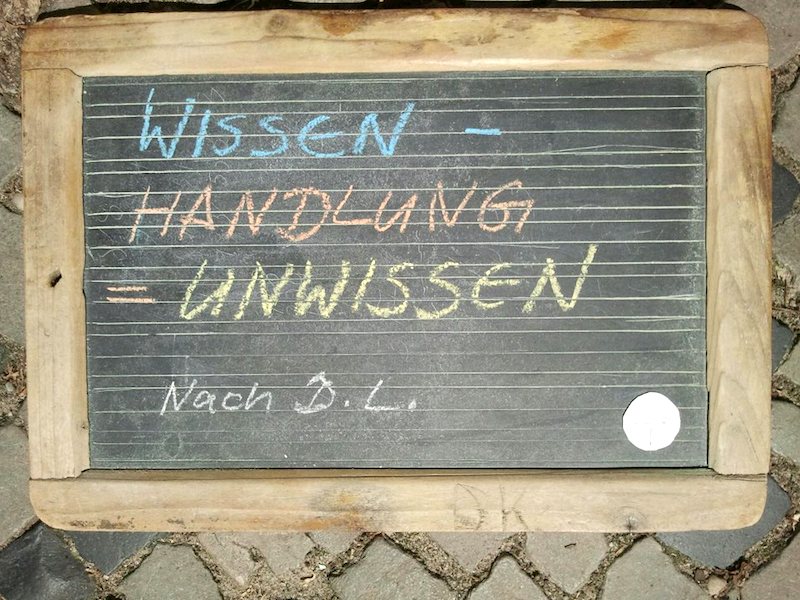 WISSEN -
HANDLUNG
= UNWISSEN
Nach D. L.
DK